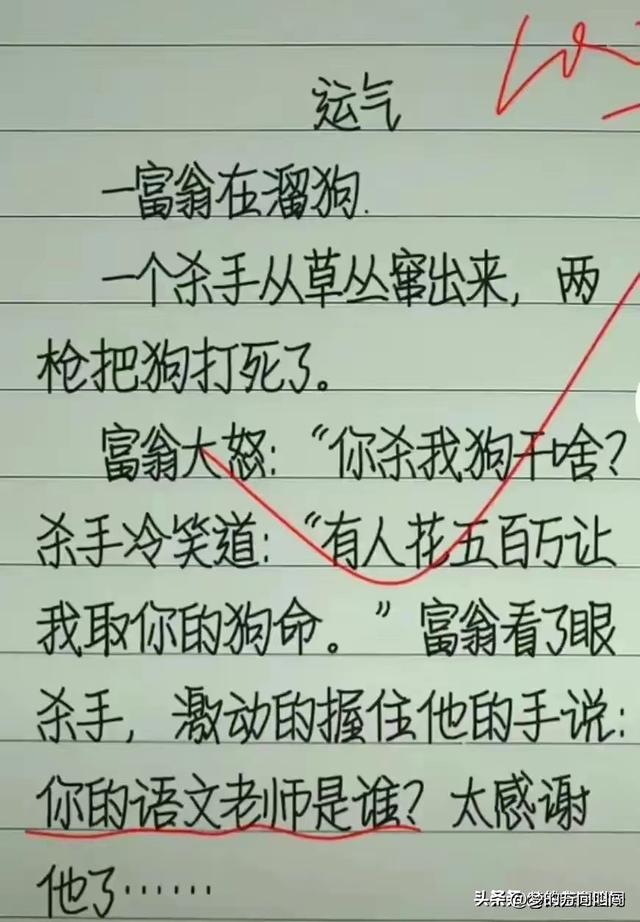 运气
一富翁在溜狗.
一个杀手从草丛窜出来，两
枪把狗打死了。
富翁大怒：“你杀我狗干啥？
杀手冷笑道：“有人花五百万让
我取你的狗命。”富翁看了眼
杀手，激动的握住他的手说：
你的语文老师是谁？太感谢
他了……
头条 @梦的方向叫闯